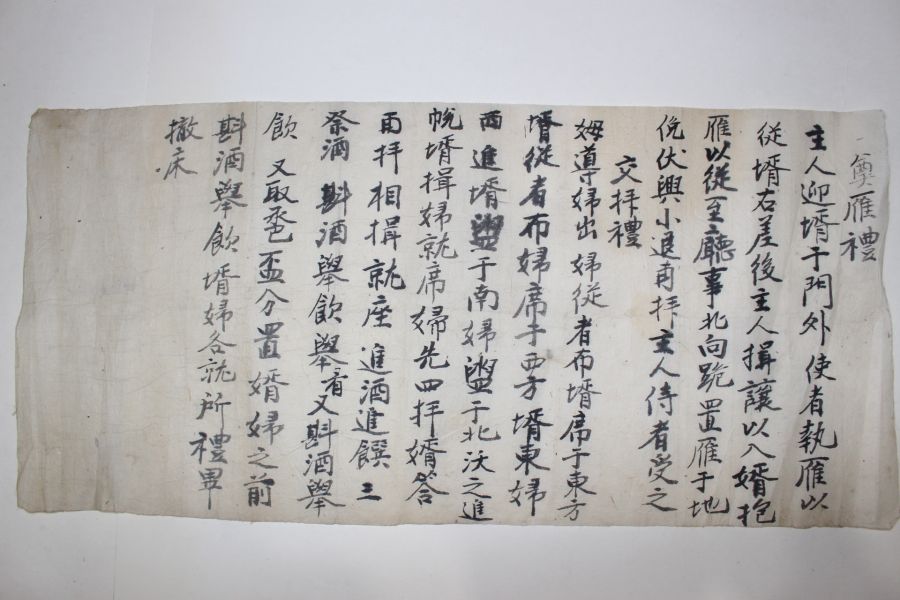 奠雁禮
主人迎壻于門外使者執雁以
從壻右差後主人揖讓以入婿抱
雁以從至廳事北向跪置雁于地
俛伏興小進再拜主人侍者受之
交拜禮
姆導婦出 婦從者布壻席于東方
壻從者布婦席于西方壻東婦
西進壻盥于南婦盥于北沃之進
帨壻揖婦就席婦先四拜婿答
再拜相揖就座進酒進饌三
祭酒 斟酒舉飲舉肴又斟酒舉
飲 又取卺盃分置婿婦之前
斟酒舉飲壻婦各就所禮畢
撤床